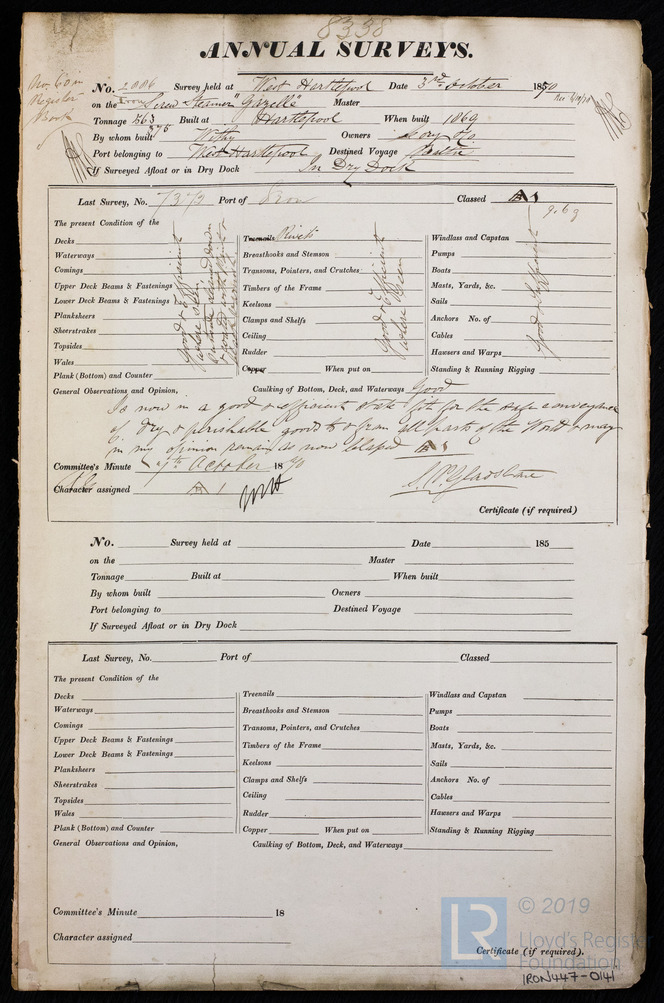 8338
ANNUAL SURVEYS.
No. 60 in
Register
Book
No. 2006 Survey held at West Hartlepool Date 3rd October 1870
Rec 4/10/70
on the Iron Screw Steamer "Gazelle" Master
Tonnage 563 Built at Hartlepool When built 1869
375
By whom built Withy Owners
Port belonging to West Hartlepool Destined Voyage Baltic
If Surveyed Afloat or in Dry Dock In Dry Dock
Last Survey, No. 7372 Port of Iron Classed A 1
9.69
The present Condition of the
Decks
Waterways
Comings
Upper Deck Beams & Fastenings
Lower Deck Beams & Fastenings
Planksheers
Sheerstrakes
Topsides
Wales
Plank (Bottom) and Counter
Good & Efficient
where seen
Treenails Rivets
Breasthooks and Stemson
Transoms, Pointers, and Crutches
Timbers of the Frame
Keelsons
Clamps and Shelfs
Ceiling
Rudder
Copper When put on
Good & Efficient
where seen
Windlass and Capstan
Pumps
Boats
Masts, Yards, &c.
Sails
Anchors No. of
Cables
Hawsers and Warps
Standing & Running Rigging
Good & Efficient
General Observations and Opinion, Caulking of Bottom, Deck, and Waterways Good
Is now in a good & efficient state fit for the safe conveyance
of dry & perishable goods to & from all parts of the World & may
in my opinion remain as now classed A 1
Committee's Minute 7th October 1870
Character assigned A 1
Certificate (if required)
No. Survey held at Date 185
on the Master
Tonnage Built at When built
By whom built Owners
Port belonging to Destined Voyage
If Surveyed Afloat or in Dry Dock
Last Survey, No. Port of Classed
The present Condition of the
Decks
Waterways
Comings
Upper Deck Beams & Fastenings
Lower Deck Beams & Fastenings
Planksheers
Sheerstrakes
Topsides
Wales
Plank (Bottom) and Counter
Treenails
Breasthooks and Stemson
Transoms, Pointers, and Crutches
Timbers of the Frame
Keelsons
Clamps and Shelfs
Ceiling
Rudder
Copper When put on
Windlass and Capstan
Pumps
Boats
Masts, Yards, &c.
Sails
Anchors No. of
Cables
Hawsers and Warps
Standing & Running Rigging
General Observations and Opinion, Caulking of Bottom, Deck, and Waterways
Committee's Minute 18
Character assigned
Certificate (if required).
LR © 2019
Lloyd's Register
Foundation
IRON447-0141